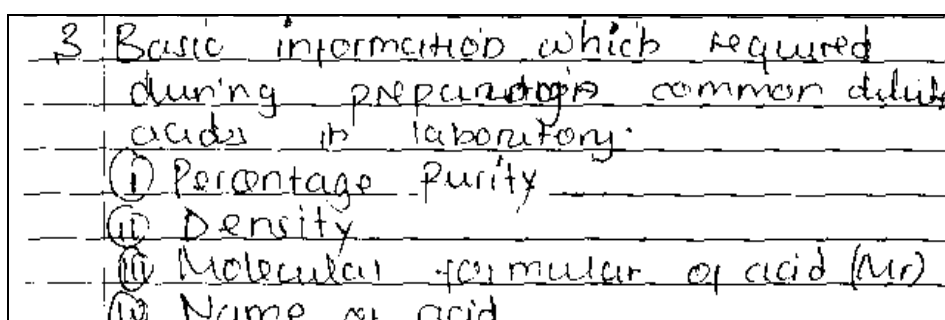 3 Basic information which required
during preparation common dilute
acids in laboratory.
(i) Percentage Purity
(ii) Density
(iii) Molecular formular of acid (Mr)
(iv) Name of acid